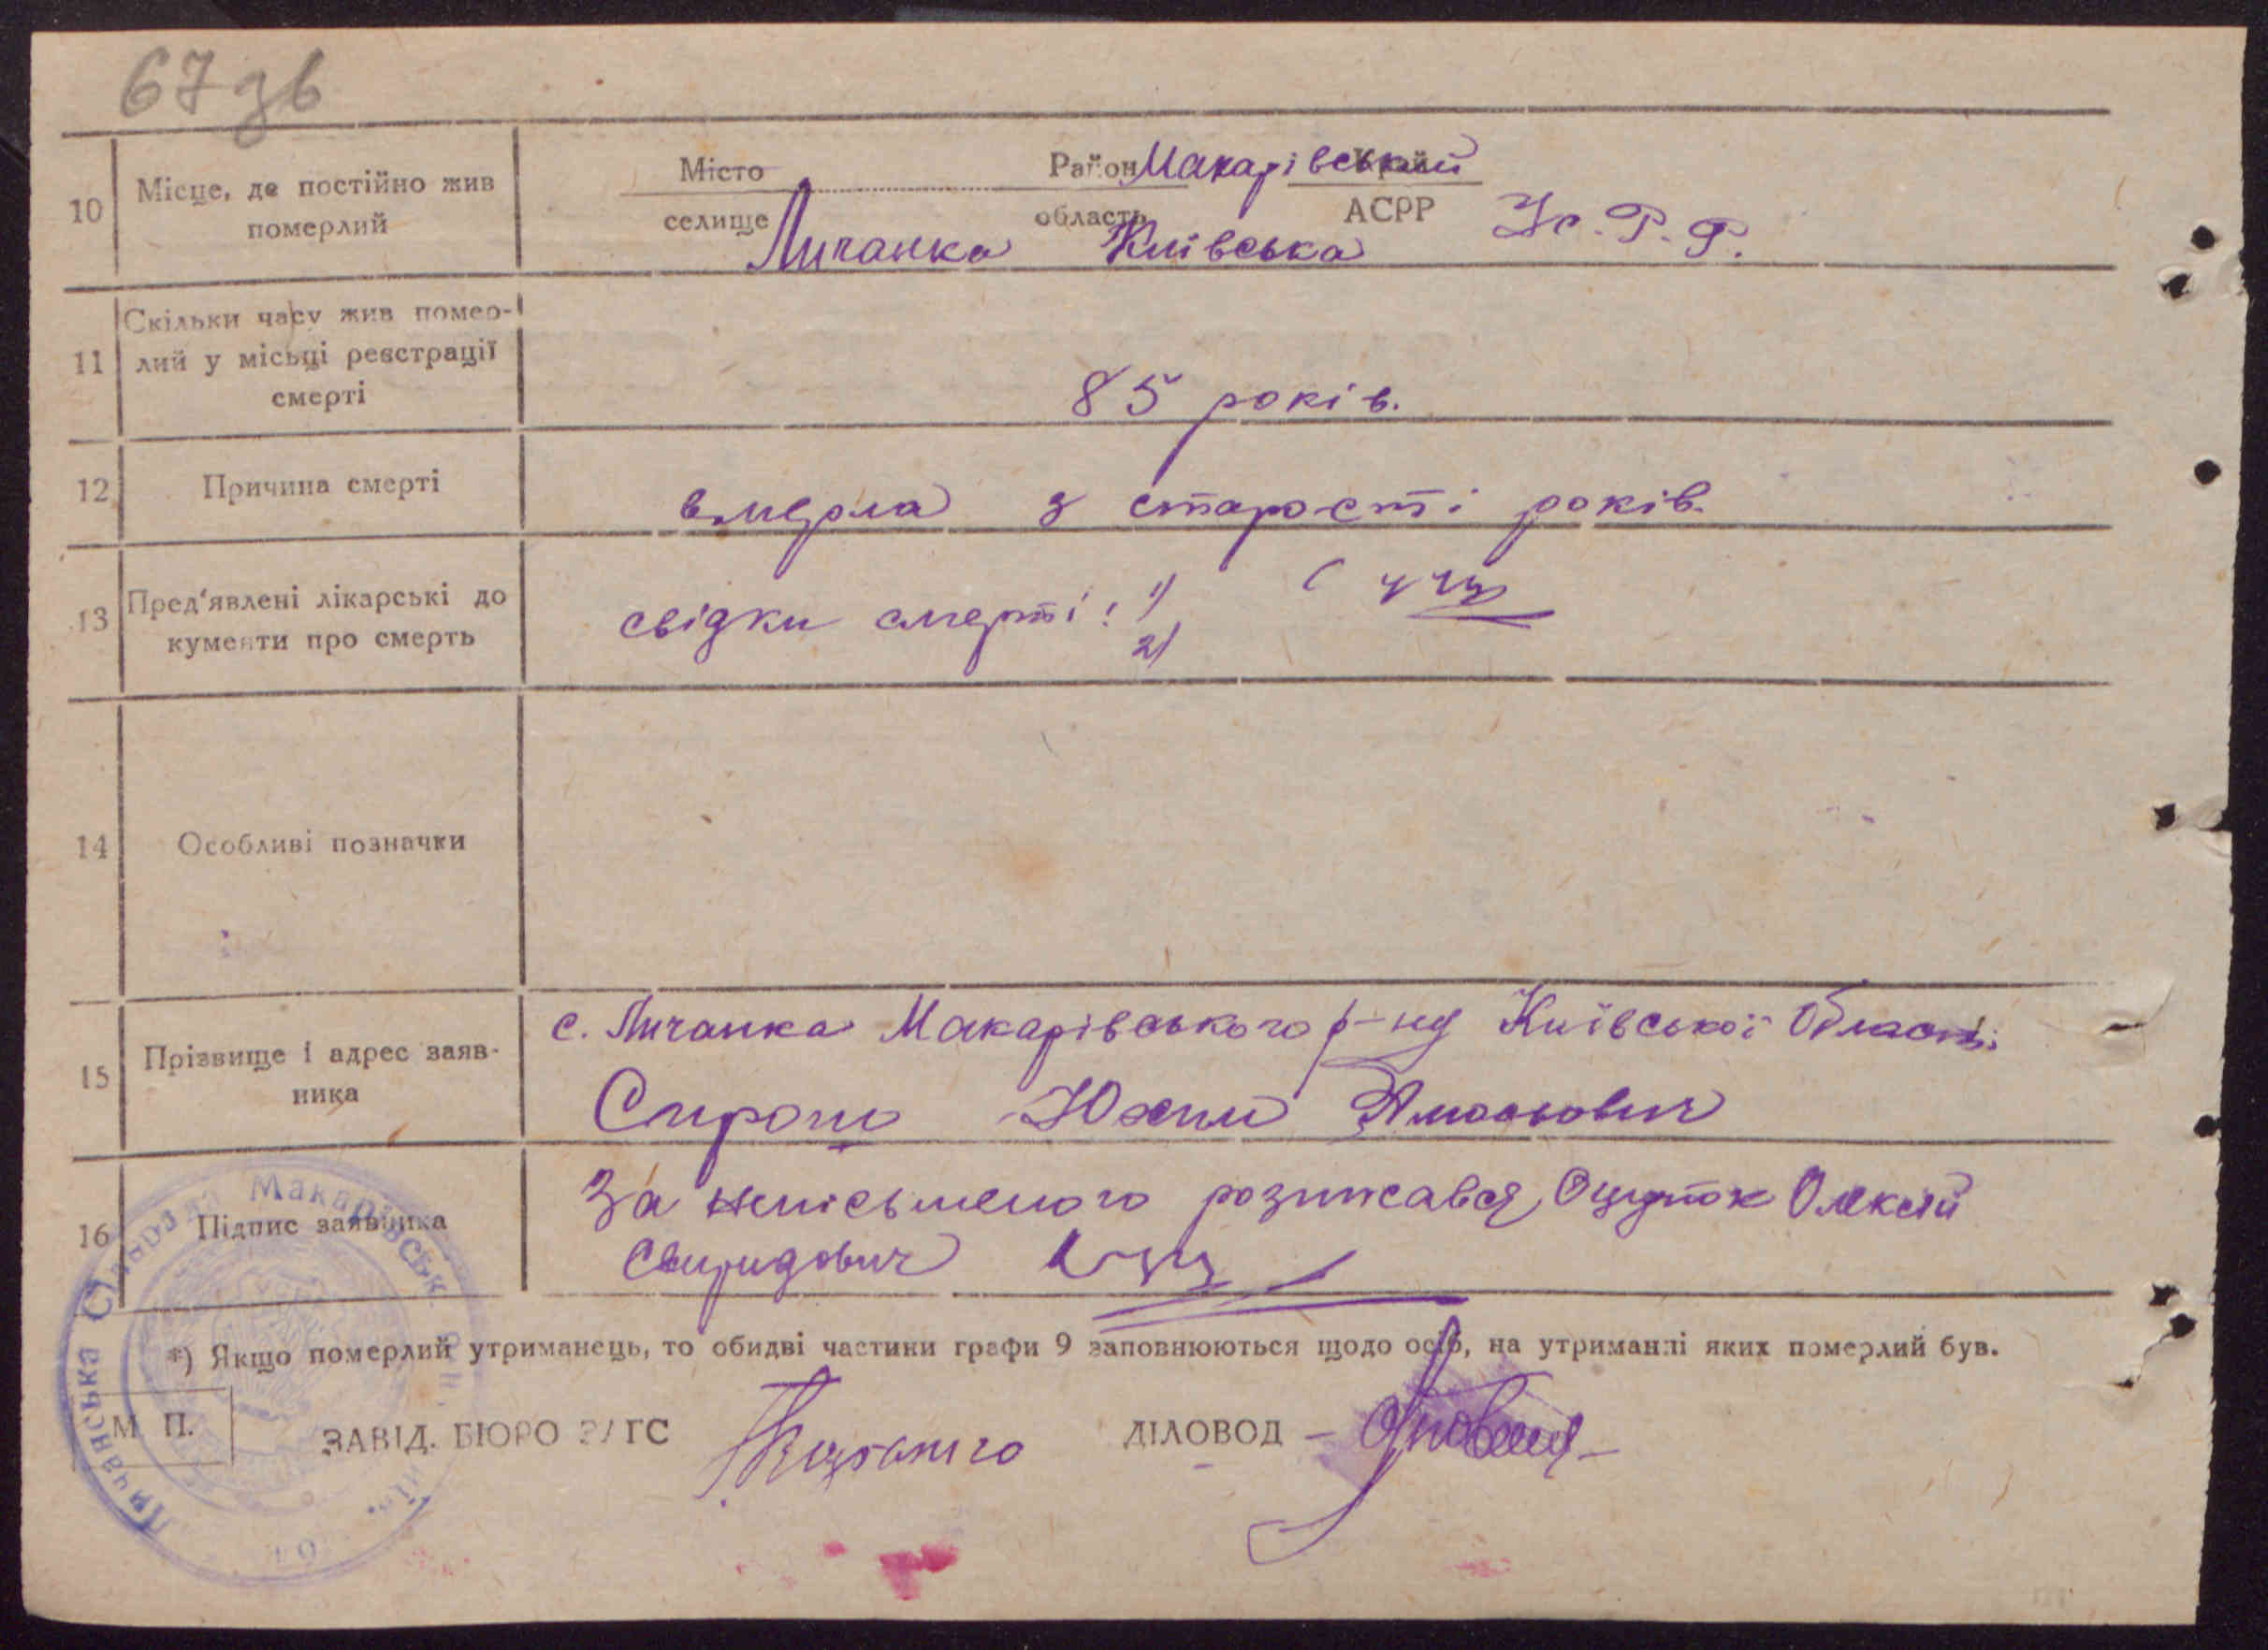 67 зв
10 Місце, де постійно жив померлий
Місто Район Макарівський Край
селище Личанка область Київська АСРР Ус.Р.Р.
11 Скільки часу жив помер-
лий у місьці реєстрації
смерті
85 років.
12 Причина смерті
вмерла з старості років.
13 Пред'явлені лікарські до
кументи про смерть
свідки смерті: 1)
2)
14 Особливі позначки
15 Прізвище і адрес заяв-
ника
с. Личанка Макарівського р-ну Київської Області
Юхим
16 Підпис заявника
За неписьменого розписався Олексій
Свиридович
*) Якщо померлий утриманець, то обидві частини графи 9 заповнюються щодо осіб, на утриманні яких померлий був.
М П.
ЗАВІД. БЮРО ЗАГС
ДІЛОВОД –
Личанська Сільрада Макарівськ.